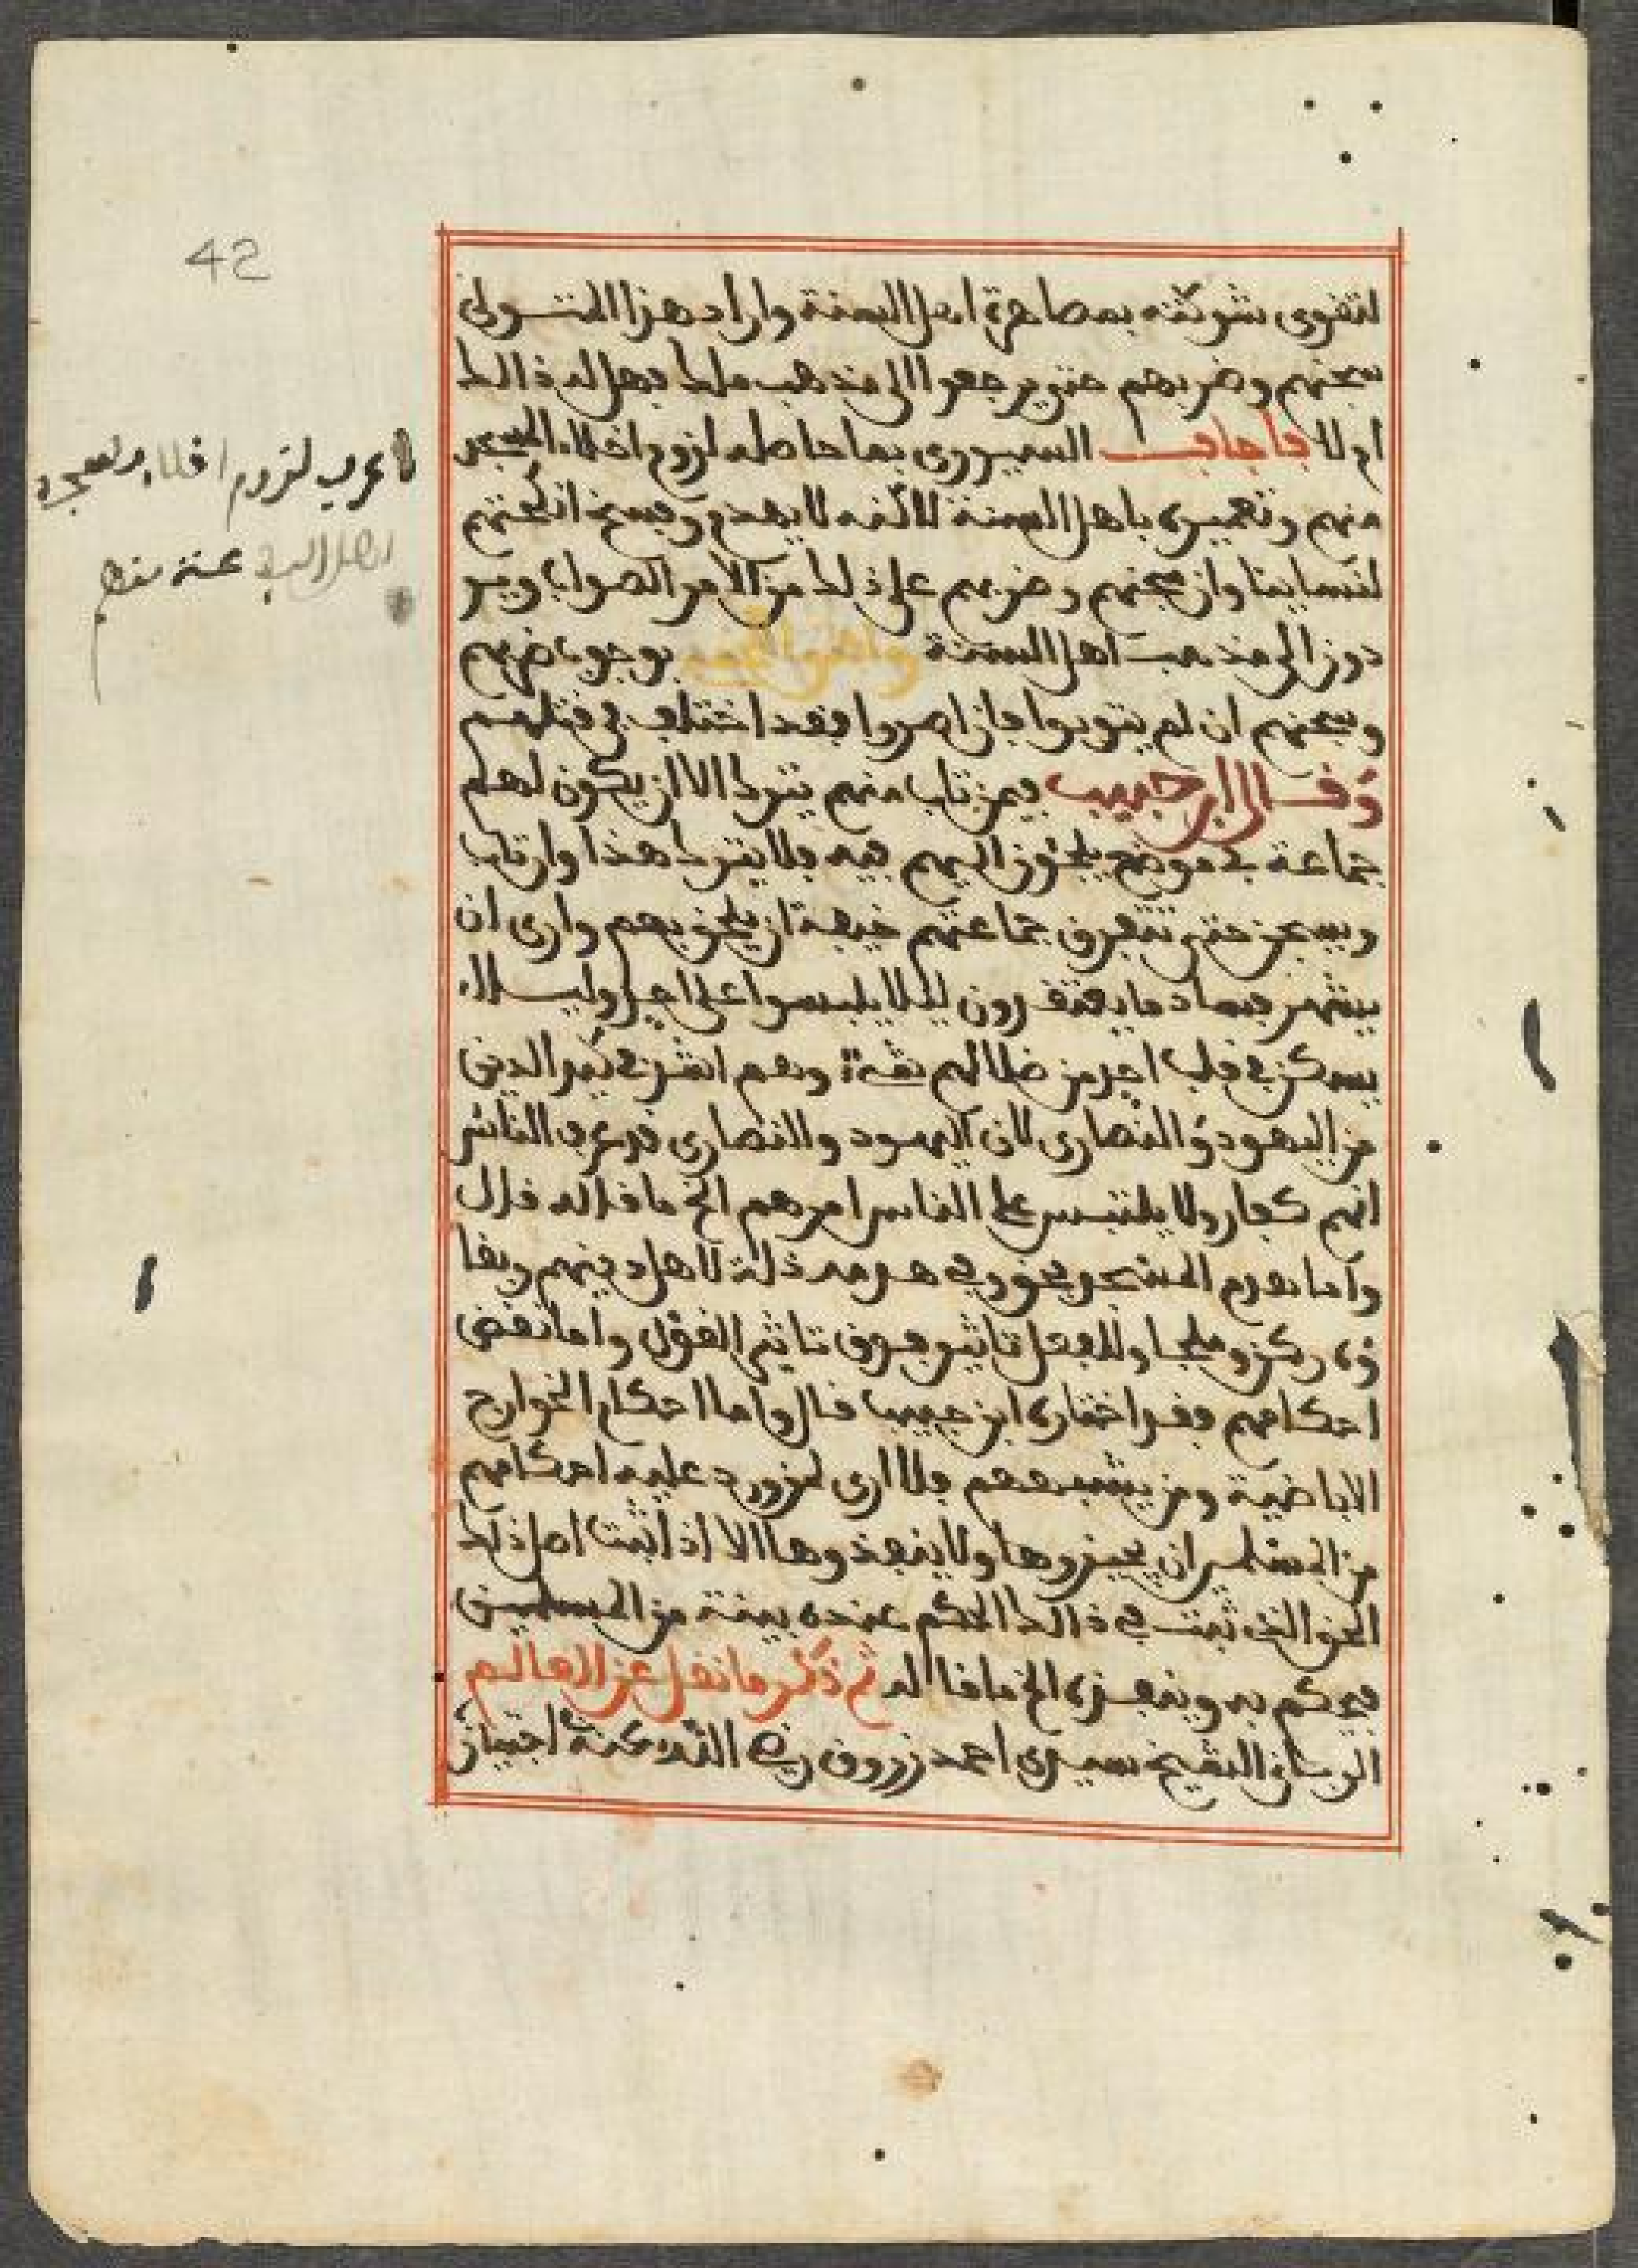 42
لتقوى شوكته بمصاهرة اهل السنة واراد هذا المتولى
سجنهم وضربهم حتى يرجعوا الى مذهب ملك فهل له ذالك
ام لا فاجاب السيورى بما حاصله لزوم اخلاء المسجد
منهم وتعميره باهل السنة لاكنه لا يهدم وفسخ انكحتهم
لنسائنا وان سجنهم وضربهم على ذلك من الامر الصواب وير
دون الى مذهب اهل السنة وافتى اللخمى بوجوب ضربهم
وسجنهم ان لم يتوبوا فان اصروا فقد اختلف فى قتلهم
وقال ابن حبيب فيمن تاب منهم يترك الا ان يكون لهم
جماعة فى موضع يلجئون اليهم فيه فلا يترك هذا وان تاب
ويسجن حتى تتفرق جماعتهم خيفة ان يلحق بهم وارى ان
يشهر فساد ما يعتقدون ليلا يلبسوا على احد وليلا
يسكن فى قلب احد من ضلالهم شىء وهم اشر فى كيد الدين
من اليهود والنصارى لان اليهود والنصارى قد عرف الناس
انهم كفار ولا يلتبس على الناس امرهم الخ ما قاله قال
واما هدم المسجد فهو مذلة لاهل دينهم وبقا
ءه ركن وملجا وللفعل تاثير فوق تاثير القول واما نقض
احكامهم فقد اختاره ابن حبيب قال واما احكام الخوارج
الاباضية ومن يشبههم فلا ارى لمن ورد عليه احكامهم
من المسلمين ان يجيزوها ولا ينفذوها الا اذا ثبت اصل ذلك
الحق الذى ثبت فى ذالك الحكم عنده ببينة من المسلمين
فيحكم به وينفذه الخ ما قاله ثم ذكر ما نقل عن العالم
الربانى الشيخ سيدى احمد زروق رضى الله عنه
لزوم اخلاء
منهم